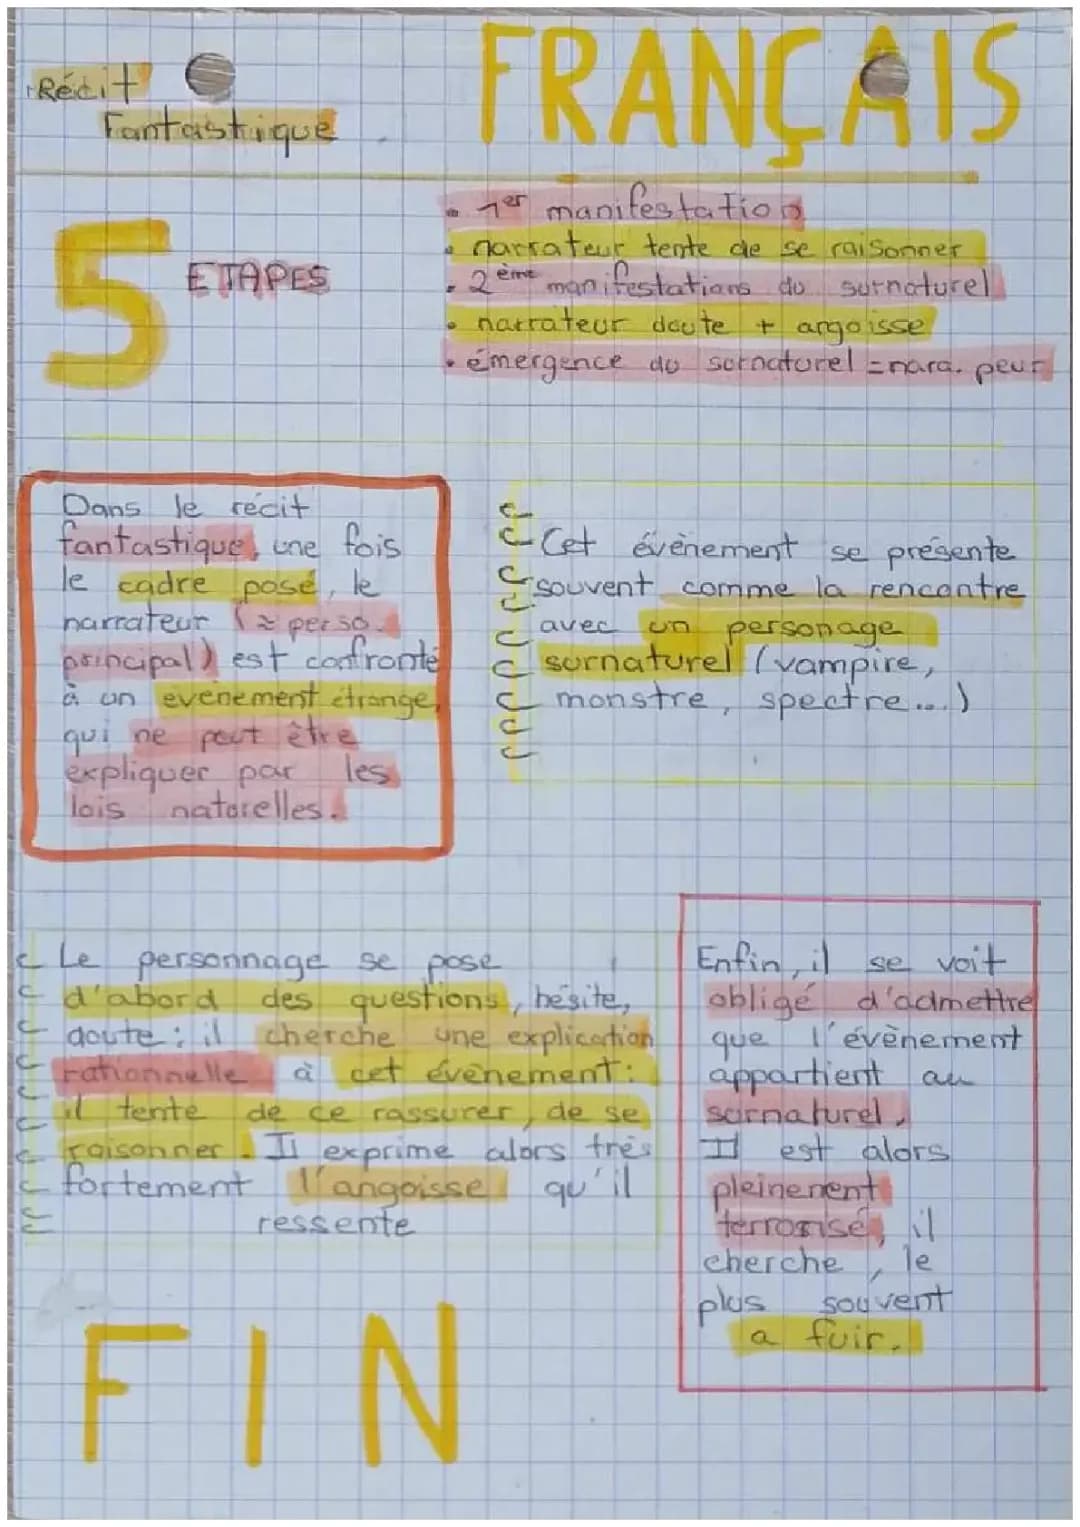 FRANÇAIS
Récit
Fantastique
5 ETAPES
• 1er manifestation
• narrateur tente de se raisonner
• 2ème manifestations du surnaturel
• narrateur doute + angoisse
• émergence du surnaturel = nara. peur
Dans le récit
fantastique, une fois
le cadre posé, le
narrateur (≈ perso.
principal) est confronté
à un evenement étrange,
qui ne peut être
expliquer par les
lois naturelles.
Cet évènement se présente
souvent comme la rencontre
avec un personage
surnaturel (vampire,
monstre, spectre...)
Le personnage se pose
d'abord des questions, hésite,
doute : il cherche une explication
rationnelle à cet évenement :
il tente de ce rassurer, de se
raisonner. Il exprime alors trés
fortement l'angoisse qu'il
ressente
Enfin, il se voit
obligé d'admettre
que l'évènement
appartient au
surnaturel.
Il est alors
pleinement
terrorisé, il
cherche, le
plus souvent
a fuir.
FIN